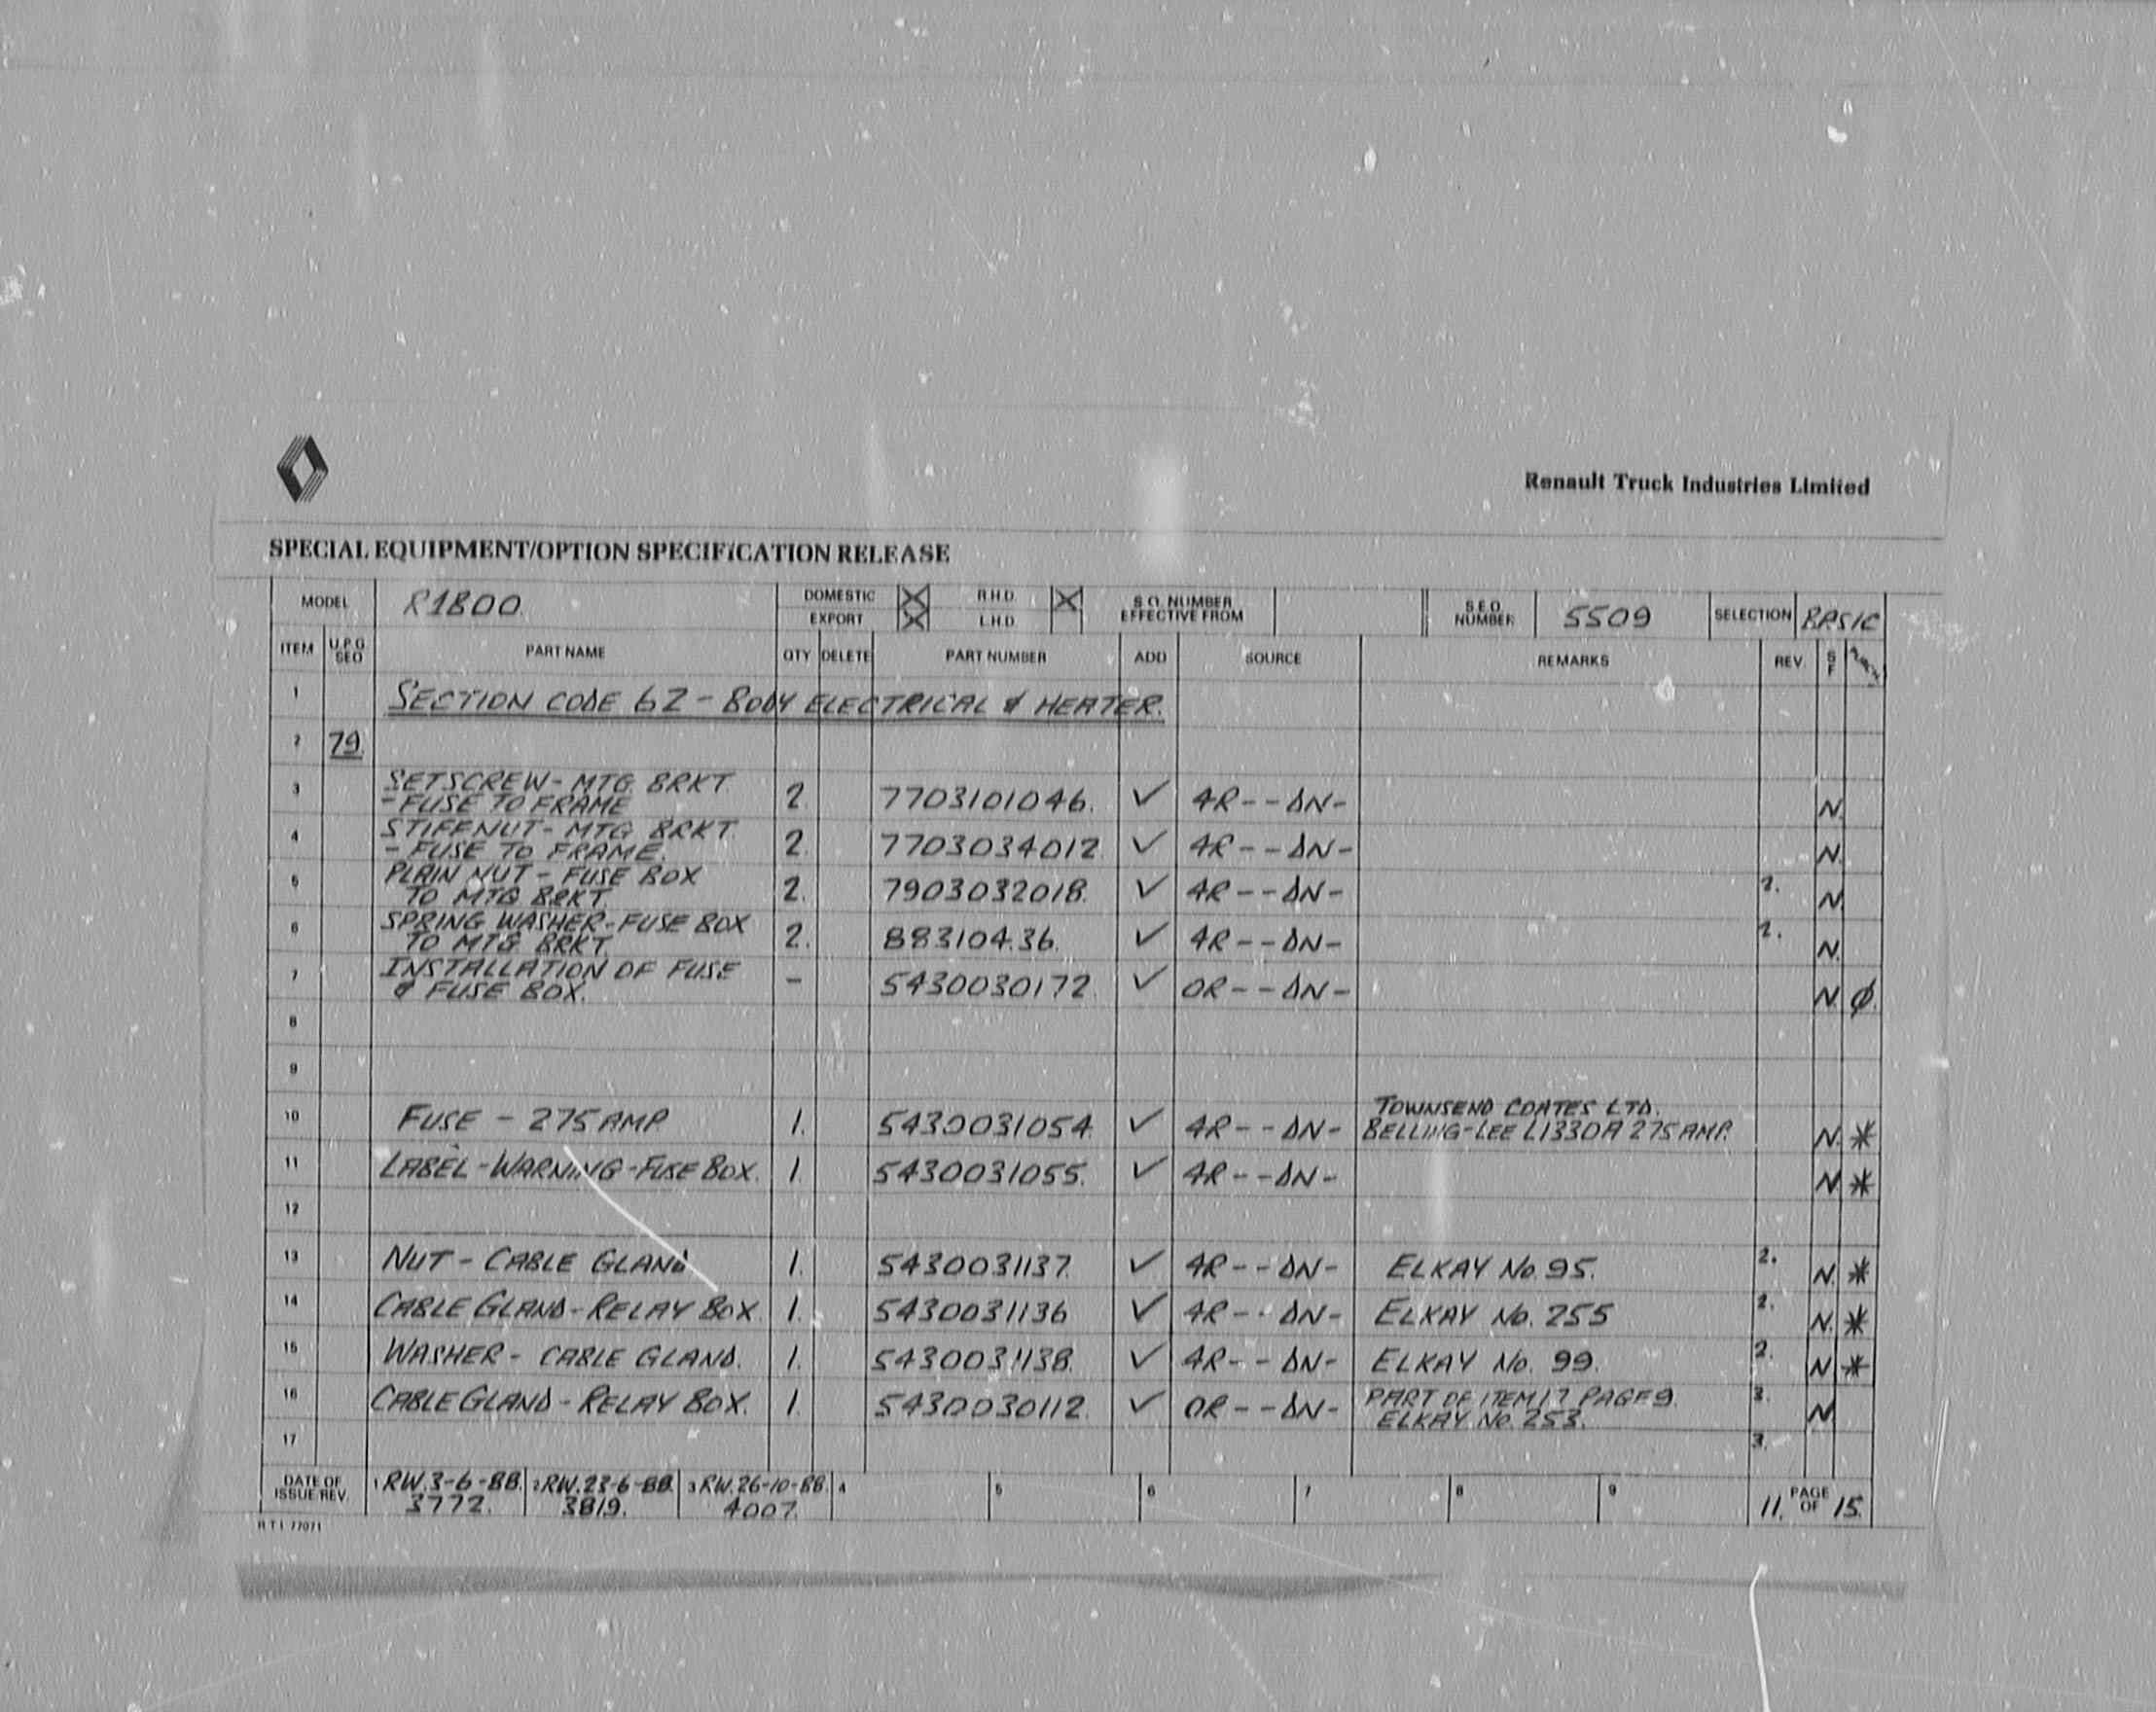 Renault Truck Industries Limited
SPECIAL EQUIPMENT/OPTION SPECIFICATION RELEASE
MODEL R1800. DOMESTIC EXPORT R.H.D. L.H.D. S.O. NUMBER EFFECTIVE FROM S.E.O. NUMBER 5509 SELECTION BASIC
ITEM U.P.G SEQ PART NAME QTY DELETE PART NUMBER ADD SOURCE REMARKS REV. S F
1 SECTION CODE 62 - BODY ELECTRICAL & HEATER.
2 79.
3 SETSCREW - MTG. BRKT. 2. 7703101046. ✓ 4R--DN- N.
- FUSE TO FRAME
4 STIFFNUT - MTG BRKT. 2. 7703034012. ✓ 4R--DN- N.
- FUSE TO FRAME.
5 PLAIN NUT - FUSE BOX 2. 7903032018. ✓ 4R--DN- 2. N.
TO MTG BRKT.
6 SPRING WASHER - FUSE BOX 2. 88310436. ✓ 4R--DN- 2. N.
TO MTG BRKT.
7 INSTALLATION OF FUSE - 5430030172. ✓ OR--DN- N. Ø.
& FUSE BOX.
8
9
TOWNSEND COATES LTD.
10 FUSE - 275 AMP. 1. 5430031054. ✓ 4R--DN- BELLING-LEE L1330A 275 AMP. N. *
11 LABEL - WARNING - FUSE BOX. 1. 5430031055. ✓ 4R--DN- N. *
12
13 NUT - CABLE GLAND 1. 5430031137. ✓ 4R--DN- ELKAY No. 95. 2. N. *
14 CABLE GLAND - RELAY BOX 1. 5430031136 ✓ 4R--DN- ELKAY No. 255 2. N. *
15 WASHER - CABLE GLAND. 1. 5430031138. ✓ 4R--DN- ELKAY No. 99. 2. N *
16 CABLE GLAND - RELAY BOX. 1. 5430030112. ✓ OR--DN- PART OF ITEM 17 PAGE 9. 3. N.
ELKAY No. 253.
17 3.
DATE OF ISSUE/REV. 1 RW. 3-6-88. 2 RW. 23-6-88. 3 RW. 26-10-88. 4 5 6 7 8 9 11. PAGE OF 15.
3772. 3819. 4007.
R.T.I. 77071